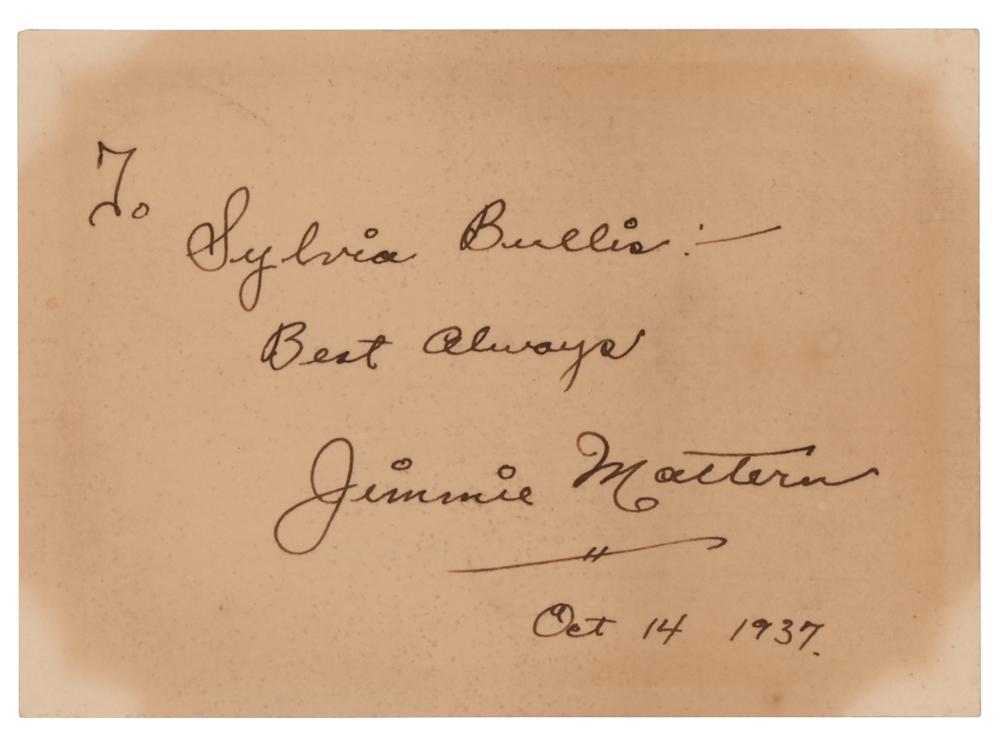 To
Sylvia Bullis :—
Best Always
Jimmie Mattern
Oct 14 1937.